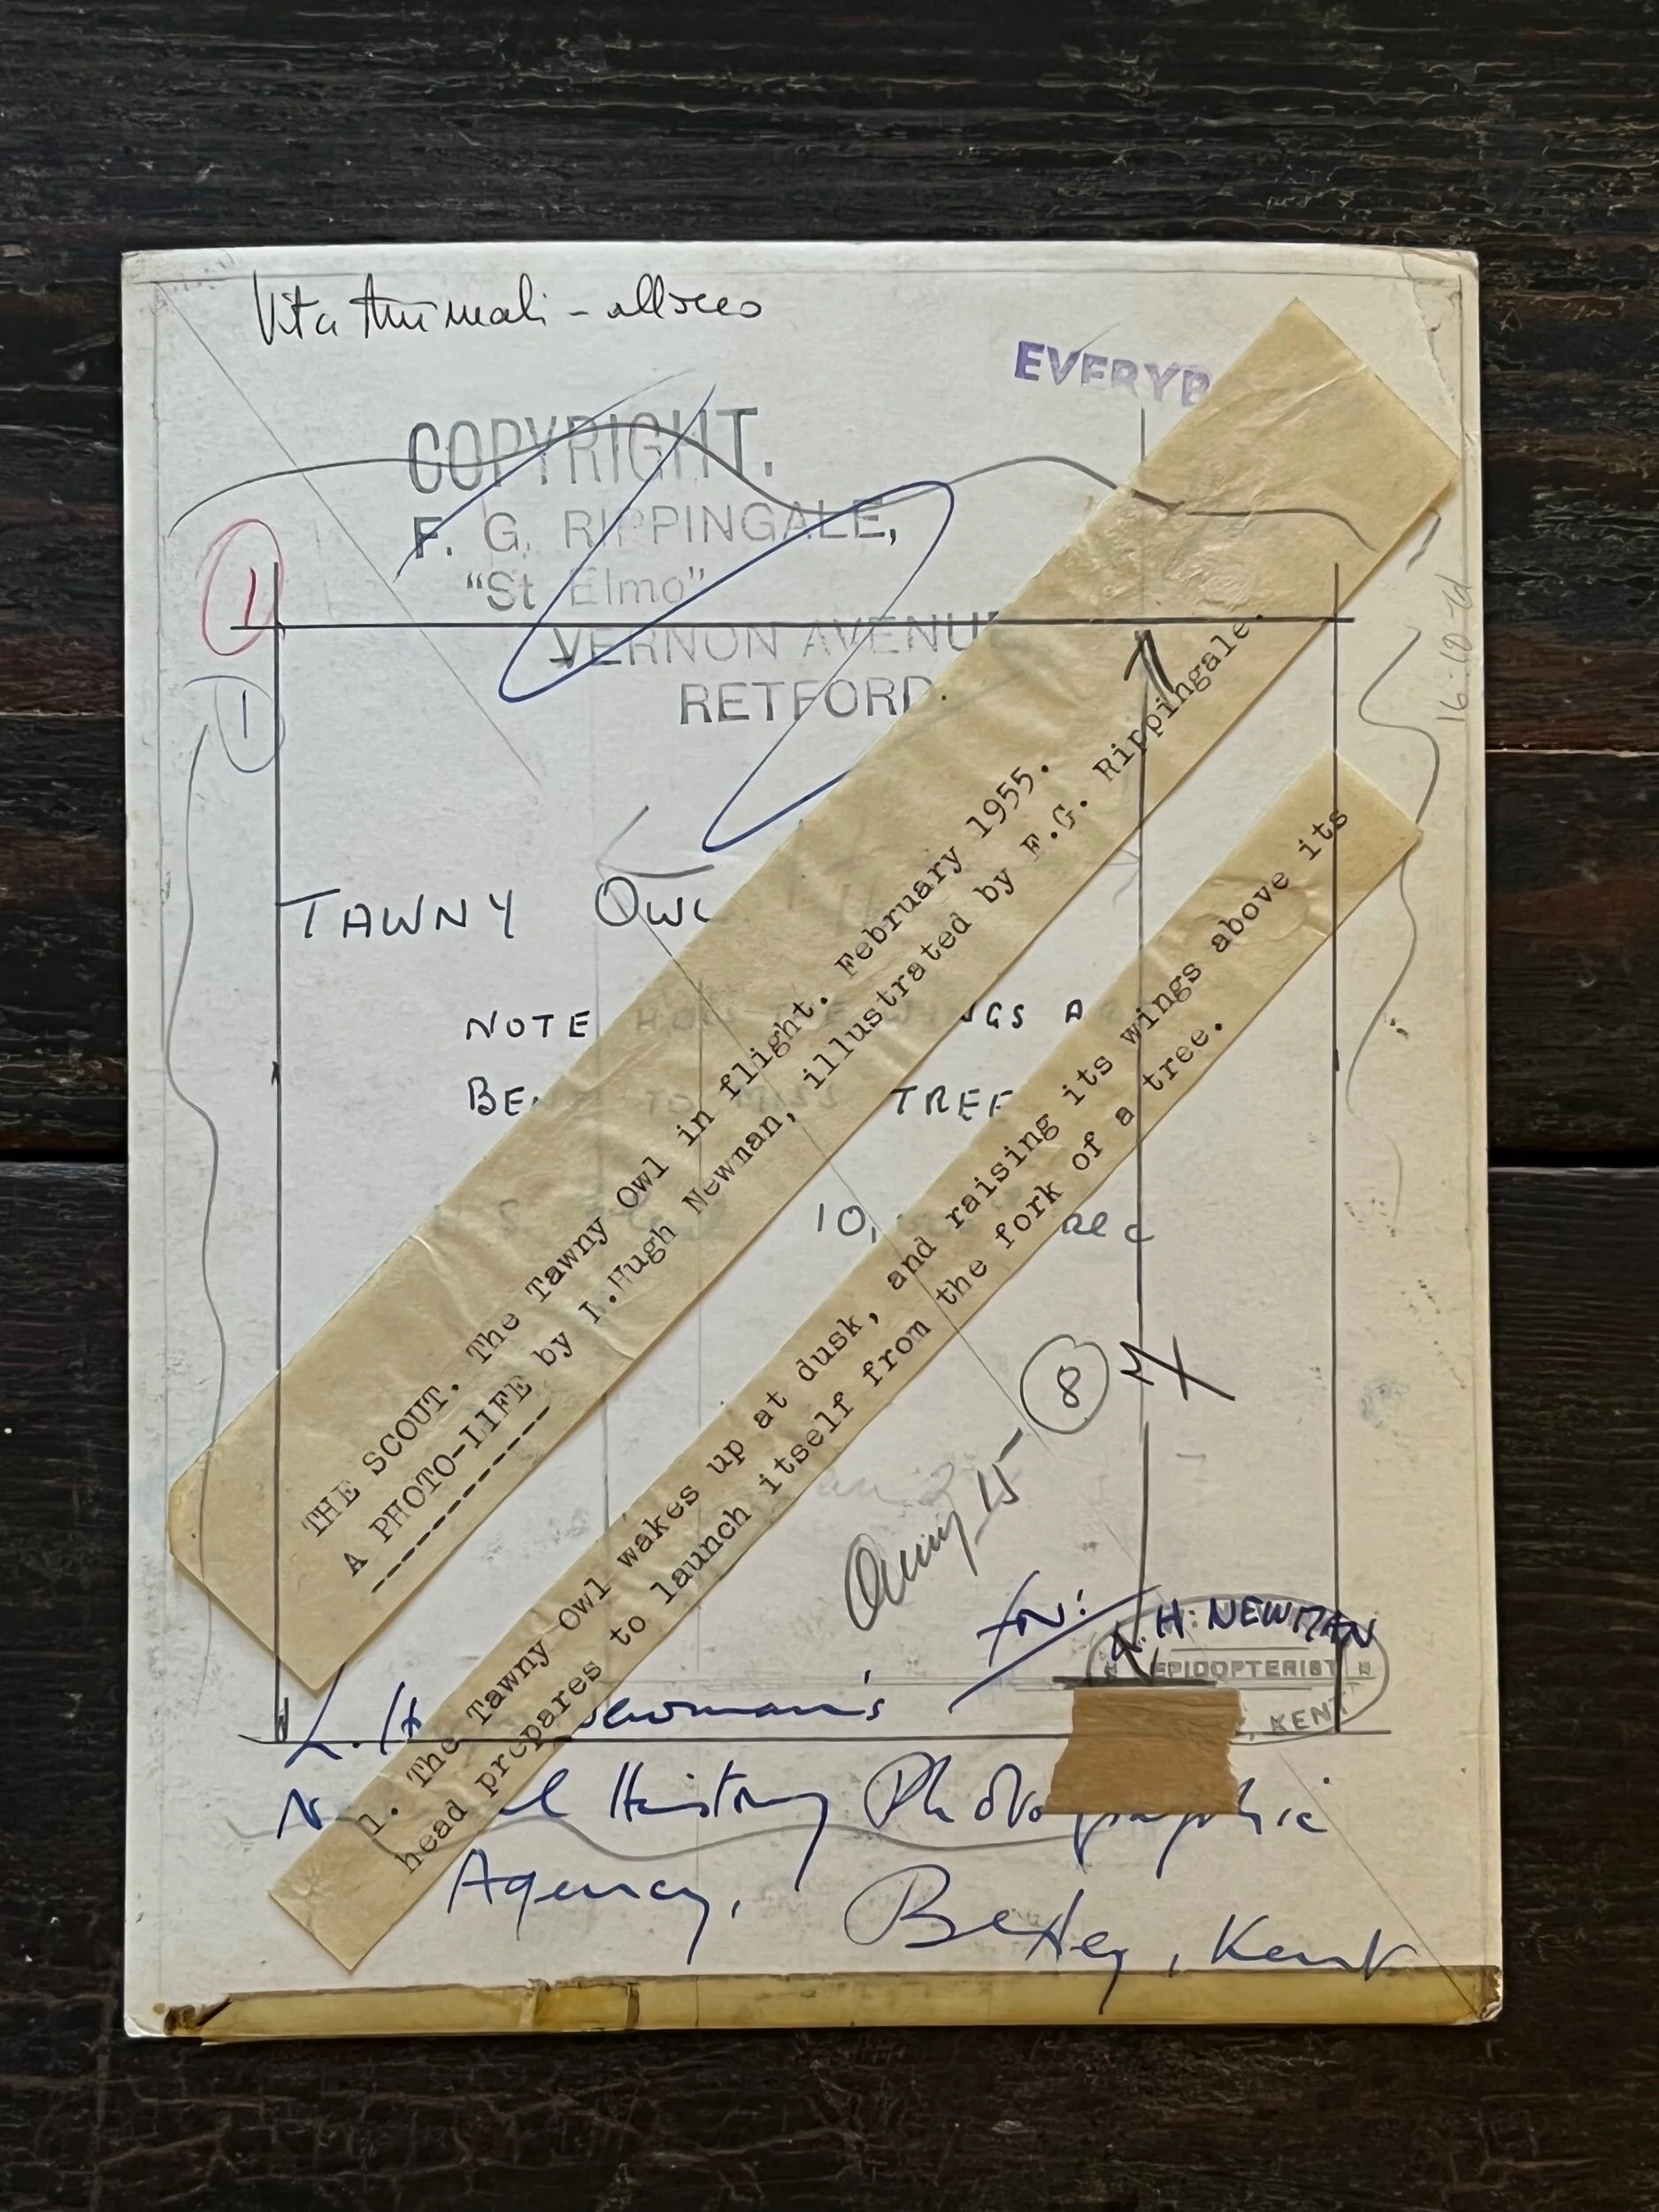 Vita Animali - allocco
EVERYB
COPYRIGHT.
F. G. RIPPINGALE,
"St Elmo"
VERNON AVENU
RETFORD.
1
1
16.10.61
TAWNY OWL
NOTE HOW THE WINGS A
BE TO TREE
10,
THE SCOUT. The Tawny Owl in flight. February 1955.
A PHOTO-LIFE by L.Hugh Newman, illustrated by F.G. Rippingale.
1. The Tawny Owl wakes up at dusk, and raising its wings above its
head prepares to launch itself from the fork of a tree.
8
for: L. H. NEWMAN
EPIDOPTERIST
, KENT
L. H. Newman's
Natural History Photographic
Agency, Bexley, Kent